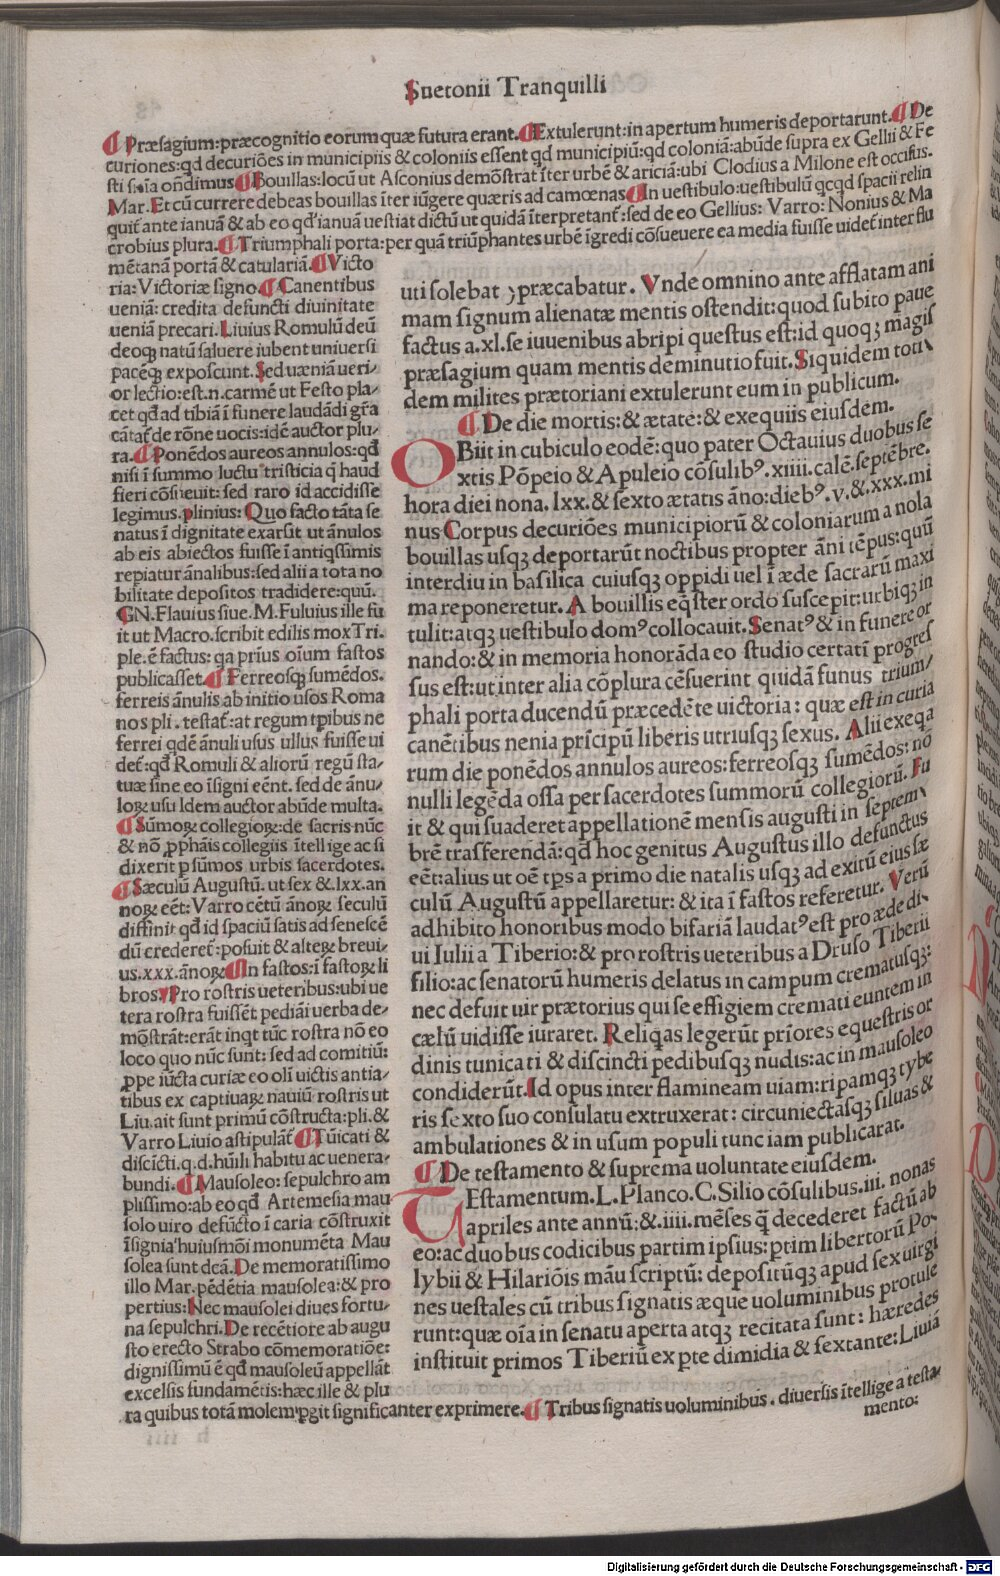 Suetonii Tranquilli
¶ Præsagium:præcognitio eorum quæ futura erant.¶ Extulerunt:in apertum humeris deportarunt.¶ De
curiones:qđ decuriōes in municipiis & coloniis essent qđ municipiū:qđ coloniā:abūde supra ex Gellii & Fe
sti s̄nīa on̄dimus¶ Bouillas:locū ut Asconius demōstrat īter urbē & ariciā:ubi Clodius a Milone est occisus.
Mar.Et cū currere debeas bouillas īter iūgere quæris ad camœnas¶ In uestibulo:uestibulū qcqd spacii relin
quit̄ ante ianuā & ab eo qđ ianuā uestiat dictū ut quidā īterpretant̄:sed de eo Gellius: Varro: Nonius & Ma
crobius plura.¶ Triumphali porta:per quā triūphantes urbē īgredi cōsueuere ea media fuisse uidet̄ inter flu
mētanā portā & catulariā.¶ Victo
ria:Victoriæ signo.¶ Canentibus
ueniā: credita defuncti diuinitate
ueniā precari.Liuius Romulū deū
deoqꝫ natū saluere iubent uniuersi
pacēqꝫ exposcunt.Sed uæniā ueri/
or lectio:est.n.carmē ut Festo pla/
cet qđ ad tibiā ī funere laudādi gr̄a
cātat̄ de rōne uocis:idē auctor plu/
ra.¶ Ponēdos aureos annulos:qđ
nisi ī summo luctu tristicia q̄ haud
fieri cōsueuit: sed raro id accidisse
legimus.plinius: Quo facto tāta se
natus ī dignitate exarsit ut ānulos
ab eis abiectos fuisse ī antiqssimis
repiatur ānalibus:sed alii a tota no
bilitate depositos tradidere:quū.
GN.Flauius siue.M.Fuluius ille fu
it ut Macro.scribit edilis mox Tri.
ple.ē factus: qa prīus oīum fastos
publicasset.¶ Ferreosqꝫ sumēdos.
ferreis ānulis ab initio usos Roma
nos pli. testat̄:at regum tp̄ibus ne
ferrei qdē ānuli usus ullus fuisse ui
det̄:qđ Romuli & aliorū regū sta/
tuæ sine eo īsigni eēnt. sed de ānu/
loꝝ usu Idem auctor abūde multa.
¶ Sūmoꝝ collegioꝝ:de sacris nūc
& nō ꝓphāis collegiis ītellige ac si
dixerit p̱ sūmos urbis sacerdotes.
¶ Sæculū Augustū. ut sex &.lxx.an
noꝝ eēt: Varro cētū ānoꝝ seculū
diffinit qđ id spaciū satis ad senescē
dū crederet̄:posuit & alteꝝ breui/
us.xxx.ānoꝝ¶ In fastos:ī fastoꝝ li
bros¶ Pro rostris ueteribus:ubi ue
tera rostra fuissēt pediāi uerba de/
mōstrāt:erāt inqt tūc rostra nō eo
loco quo nūc sunt: sed ad comitiū:
ꝓpe iūcta curiæ eo oli uictis antia/
tibus ex captiuaꝝ nauiū rostris ut
Liu.ait sunt primū cōstructa:pli.&
Varro Liuio astipulāt̄ ¶ Tūicati &
discīcti.q.d.hūīli habitu ac uenera/
bundi.¶ Mausoleo: sepulchro am
plissimo:ab eo qđ Artemesia mau
solo uiro defūcto ī caria cōstruxit
īsignia huiusmōi monumēta Mau
solea sunt dcā.De memoratissimo
illo Mar.pēdētia mausolea:& pro
pertius:Nec mausolei diues fortu/
na sepulchri.De recētiore ab augu
sto erecto Strabo cōmemoratiōe:
dignissimū ē qđ mausoleū appellāt
excelsis fundamētis:hæc ille & plu
ra quibus totā molem p̱git significanter exprimere.¶ Tribus signatis uoluminibus. diuersis ītellige a testa
mento:
uti solebat ꝫ præcabatur. Vnde omnino ante afflatam ani
mam signum alienatæ mentis ostendit:quod subito paue
factus a.xl.se iuuenibus abripi questus est:id quoqꝫ magis
præsagium quam mentis deminutio fuit.Siquidem toti/
dem milites prætoriani extulerunt eum in publicum.
¶ De die mortis:& ætate:& exequiis eiusdem.
OBiit in cubiculo eodē:quo pater Octauius duobus se
xtis Pōpeio & Apuleio cōsulibꝰ.xiiii.calē.septēbre.
hora diei nona.lxx.& sexto ætatis āno:diebꝰ.v.&.xxx.mi
nus Corpus decuriōes municipiorū & coloniarum a nola
bouillas usqꝫ deportarūt noctibus propter āni tēpus:quū
interdiu in basilica cuiusqꝫ oppidi uel ī æde sacrarū maxi
ma reponeretur. A bouillis eq̄ster ordo suscepit:urbiqꝫ in
tulit:atqꝫ uestibulo domꝰ collocauit.Senatꝰ & in funere or
nando:& in memoria honorāda eo studio certatī progres
sus est:ut inter alia cōplura cēsuerint quidā funus trium/
phali porta ducendū præcedēte uictoria: quæ est in curia
canētibus nenia prīcipū liberis utriusqꝫ sexus. Alii exeqa
rum die ponēdos annulos aureos:ferreosqꝫ sumēdos: nō
nulli legēda ossa per sacerdotes summorū collegiorū. Fu
it & qui suaderet appellationē mensis augusti in septem/
brē trasferendā:qđ hoc genitus Augustus illo defunctus
eēt:alius ut oē tp̄s a primo die natalis usqꝫ ad exitū eius sæ
culū Augustū appellaretur: & ita ī fastos referetur. Verū
adhibito honoribus modo bifariā laudatꝰ est pro æde di/
ui Iulii a Tiberio:& pro rostris ueteribus a Druso Tiberii
filio:ac senatorū humeris delatus in campum crematusqꝫ:
nec defuit uir prætorius qui se effigiem cremati euntem in
cælū uidisse iuraret. Reliqas legerūt prīores equestris or
dinis tunicati & discincti pedibusqꝫ nudis:ac in mausoleo
condiderūt.Id opus inter flamineam uiam:ripamqꝫ tybe
ris sexto suo consulatu extruxerat: circuniectasqꝫ siluas &
ambulationes & in usum populi tunc iam publicarat.
¶ De testamento & suprema uoluntate eiusdem.
TEstamentum.L.Planco.C.Silio cōsulibus.iii. nonas
apriles ante annū:&.iiii.mēses q̄ decederet factū ab
eo:ac duobus codicibus partim ipsius:p̱tim libertorū Po/
lybii & Hilariōis māu scriptū: depositūqꝫ apud se uirgi
nes uestales cū tribus signatis æque uoluminibus protule
runt:quæ oīa in senatu aperta atqꝫ recitata sunt: hæredes
instituit primos Tiberiū ex p̱te dimidia & sextante: Liuiā
Digitalisierung gefördert durch die Deutsche Forschungsgemeinschaft - DFG